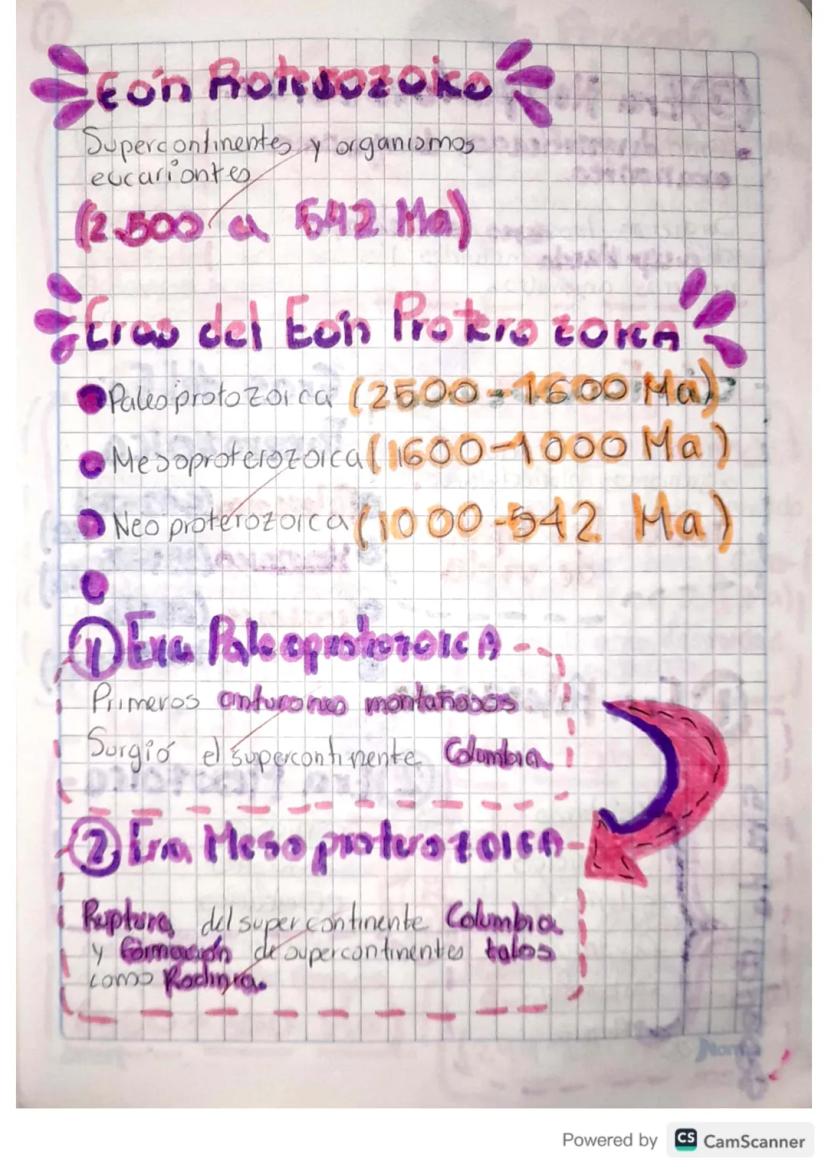 Eón Proterozoico
Supercontinentes y organismos
eucariontes
(2.500 a 542 Ma)
Eras del Eón Proterozoica
Paleoprotozoica (2500-1600 Ma)
Mesoproterozoica (1600-1000 Ma)
Neoproterozoica (1000-542 Ma)
1 Era Paleoprotozoica
Primeros cinturones montañosos
Surgió el supercontinente Columbia
2 Era Mesoproterozoica
Ruptura del supercontinente Columbia
y formación de supercontinentes tales
como Rodinia.
Norma
Powered by CS CamScanner